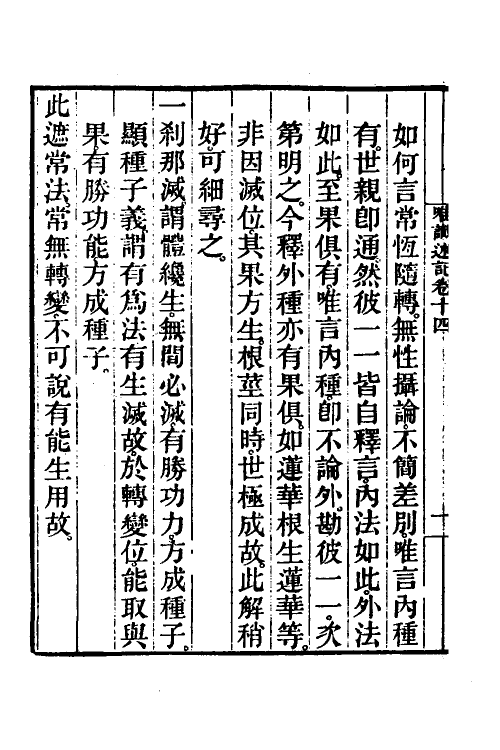 唯識述記卷十四
如何言常恆隨轉。無性攝論。不簡差別。唯言內種
有。世親卽通。然彼一一皆自釋言。內法如此。外法
如此。至果俱有。唯言內種。卽不論外。勘彼一一。次
第明之。今釋外種亦有果俱。如蓮華根生蓮華等。
非因滅位。其果方生。根莖同時。世極成故。此解稍
好。可細尋之。
一剎那滅。謂體纔生。無間必滅。有勝功力。方成種子。
顯種子義。謂有爲法有生滅故。於轉變位。能取與
果。有勝功能方成種子。
此遮常法。常無轉變。不可說有能生用故。